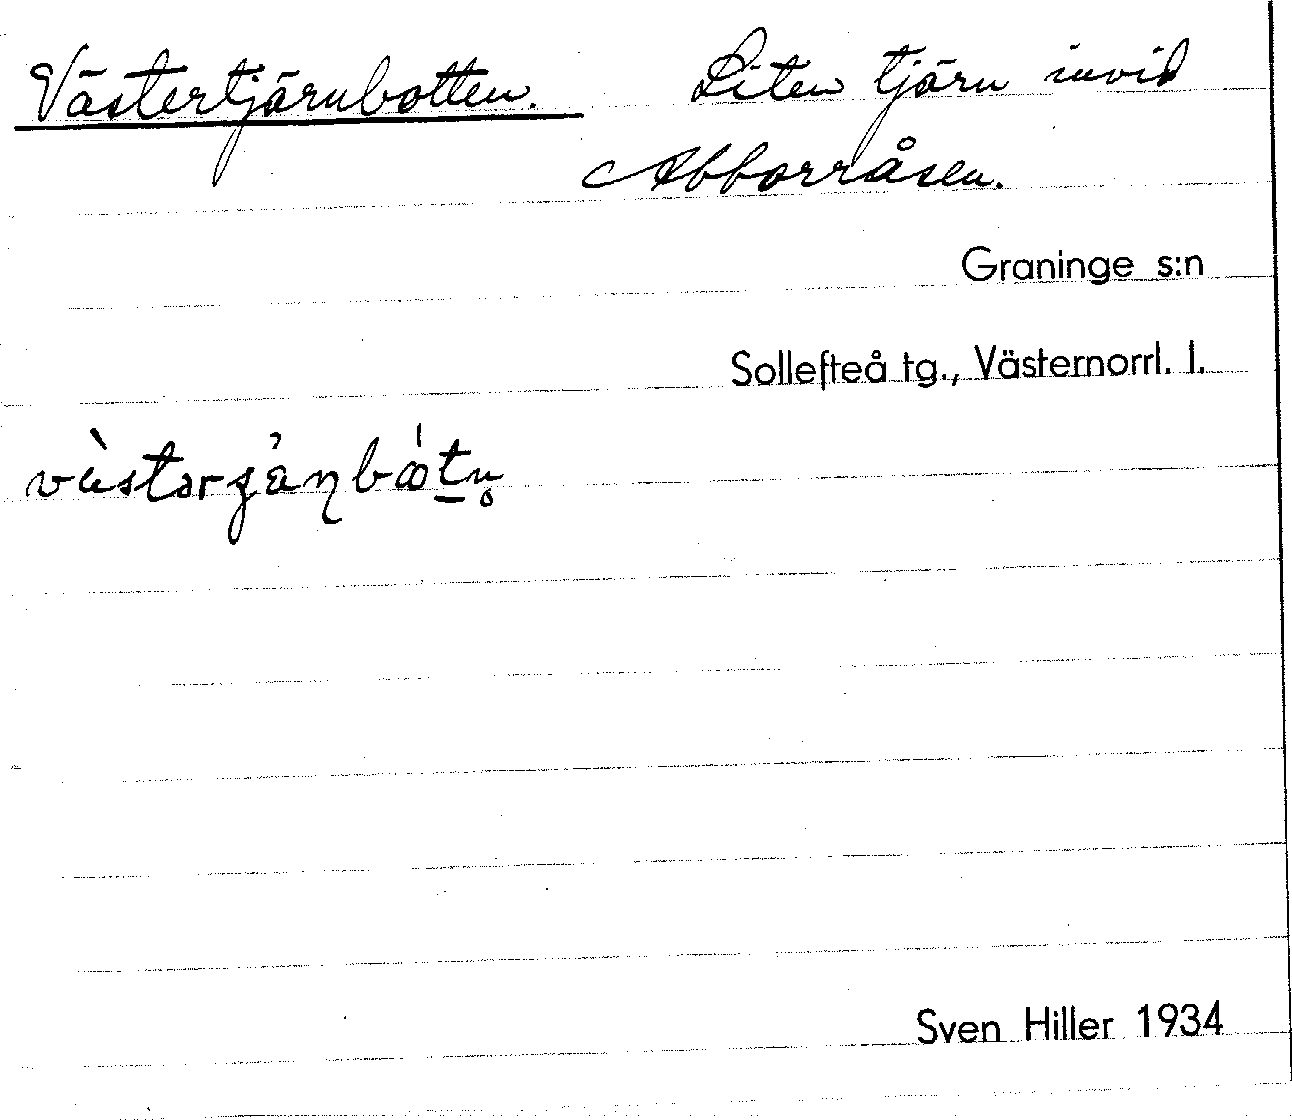 Västertjärnbotten. Liten tjärn invid
Abborråsen.
Graninge s:n
Sollefteå tg., Västernorrl. l.
Sven Hiller 1934